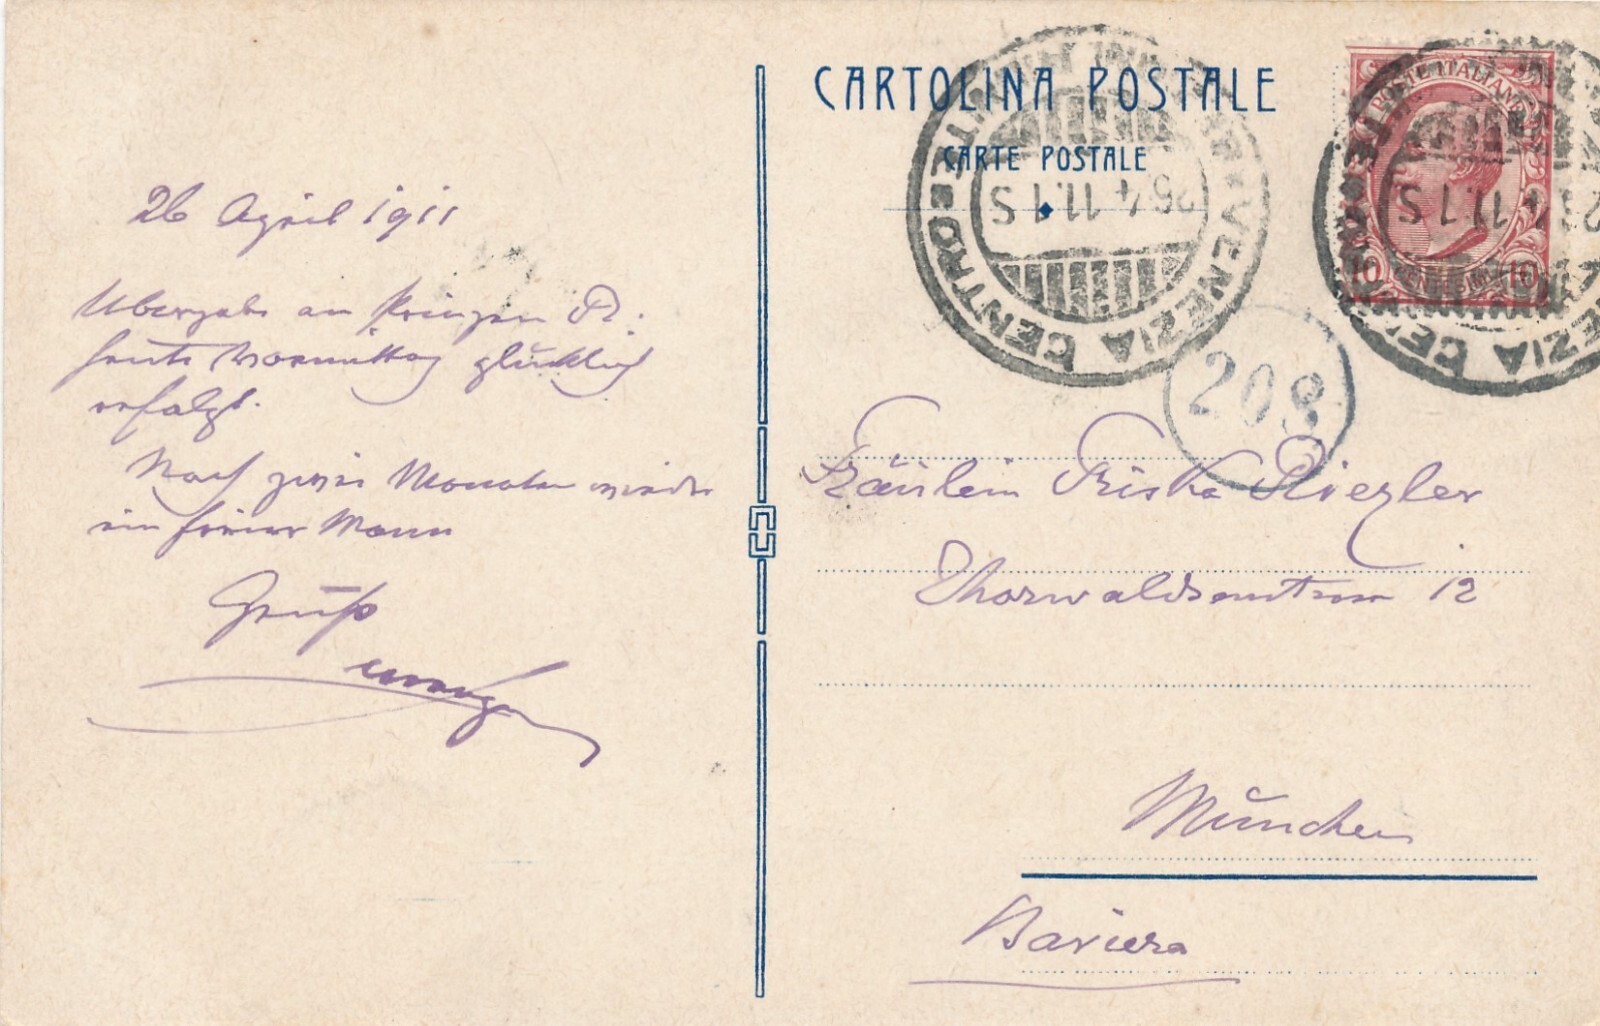 26 April 1911
Übergabe an Prinzen R.
heute Vormittag glücklich
erfolgt.
Nach zwei Monaten wieder
ein freier Mann
Gruß
CARTOLINA POSTALE
CARTE POSTALE
VENEZIA CENTRO
25.4.11.1S
POSTE ITALIANE
10 CENTESIMI 10
VENEZIA
4.11.1S
208
Fräulein Friska Riezler
Thorwaldsenstrasse 12
München
Baviera